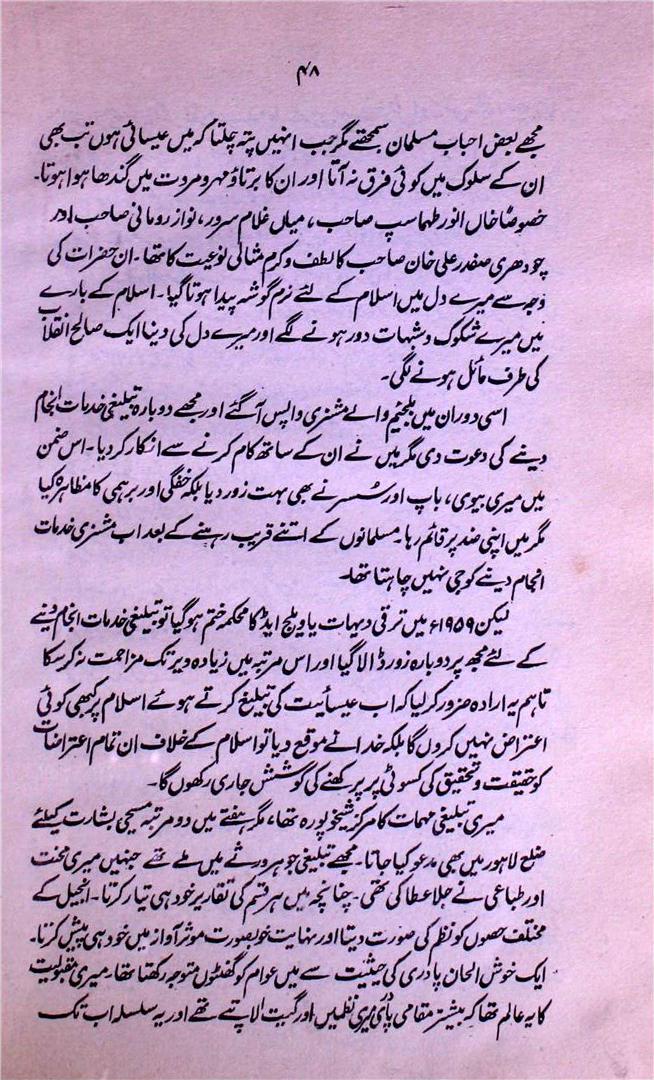 ۴۸
مجھے بعض احباب مسلمان سمجھتے مگر جب انہیں پتہ چلتا کہ میں عیسائی ہوں تب بھی
ان کے سلوک میں کوئی فرق نہ آتا اور ان کا برتاؤ مہر و مروت میں گندھا ہوا ہوتا۔
خصوصاً خاں انور طہماسپ صاحب، میاں غلام سرور، نواز رومانی صاحب اور
چودھری صفدر علی خان صاحب کا لطف و کرم مثالی نوعیت کا تھا۔ ان حضرات کی
وجہ سے میرے دل میں اسلام کے لئے نرم گوشہ پیدا ہوتا گیا۔ اسلام کے بارے
میں میرے شکوک و شبہات دور ہونے لگے اور میرے دل کی دینا ایک صالح انقلاب
کی طرف مائل ہونے لگی۔
اسی دوران میں بلجیم والے مشنری واپس آگئے اور مجھے دوبارہ تبلیغی خدمات انجام
دینے کی دعوت دی مگر میں نے ان کے ساتھ کام کرنے سے انکار کر دیا۔ اس ضمن
میں میری بیوی، باپ اور سُسر نے بھی بہت زور دیا بلکہ خفگی اور برہمی کا مظاہرہ کیا
مگر میں اپنی ضد پر قائم رہا۔ مسلمانوں کے اتنے قریب رہنے کے بعد اب مشنری خدمات
انجام دینے کو جی نہیں چاہتا تھا۔
لیکن ۱۹۵۹ء میں ترقی دیہات یا ویلج ایڈ کا محکمہ ختم ہو گیا تو تبلیغی خدمات انجام دینے
کے لئے مجھ پر دوبارہ زور ڈالا گیا اور اس مرتبہ میں زیادہ دیر تک مزاحمت نہ کر سکا
تاہم یہ ارادہ ضرور کر لیا کہ اب عیسائیت کی تبلیغ کرتے ہوئے اسلام پر کبھی کوئی
اعتراض نہیں کروں گا بلکہ خدا نے موقع دیا تو اسلام کے خلاف ان تمام اعتراضات
کو حقیقت و تحقیق کی کسوٹی پر پرکھنے کی کوشش جاری رکھوں گا۔
میری تبلیغی مہمات کا مرکز شیخوپورہ تھا، مگر ہفتے میں دو مرتبہ مسیحی بشارت کیلئے
ضلع لاہور میں بھی مدعو کیا جاتا۔ مجھے تبلیغی جوہر ورثے میں ملے تھے جنہیں میری محنت
اور طباعی نے جلا عطا کی تھی۔ چنانچہ میں ہر قسم کی تقاریر خود ہی تیار کرتا۔ انجیل کے
مختلف حصوں کو نظم کی صورت دیتا اور نہایت خوبصورت موثر آواز میں خود ہی پیش کرتا۔
ایک خوش الحان پادری کی حیثیت سے میں عوام کو گھنٹوں متوجہ رکھتا تھا۔ میری مقبولیت
کا یہ عالم تھا کہ بیشتر مقامی پادری میری نظمیں اور گیت الاپتے تھے اور یہ سلسلہ اب تک